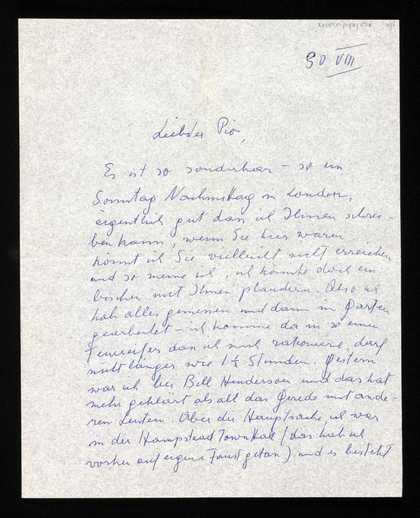 30 VIII
Liebster Pio,
Es ist so sonderbar – so ein
Sonntag Nachmittag in London,
eigentlich gut dass ich Ihnen schrei-
ben kann, wenn Sie hier waren
könnt ich Sie vielleicht nicht erreichen
und so meine ich, ich könnte doch ein
bischen mit Ihnen plaudern. Also ich
hab alles gemessen und dann im Garten
gearbeitet – ich komme da in so einen
Feuereifer dass ich mich rationiere, darf
nicht länger wie 1½ Stunden. Gestern
war ich bei Bill Henderson und das hat
mehr geklärt als all das Gerede mit ande-
ren Leuten. Aber die Hauptsache ich war
in der Hampstead Town Hall (das hab ich
vorher auf eigene Faust getan) und es besteht